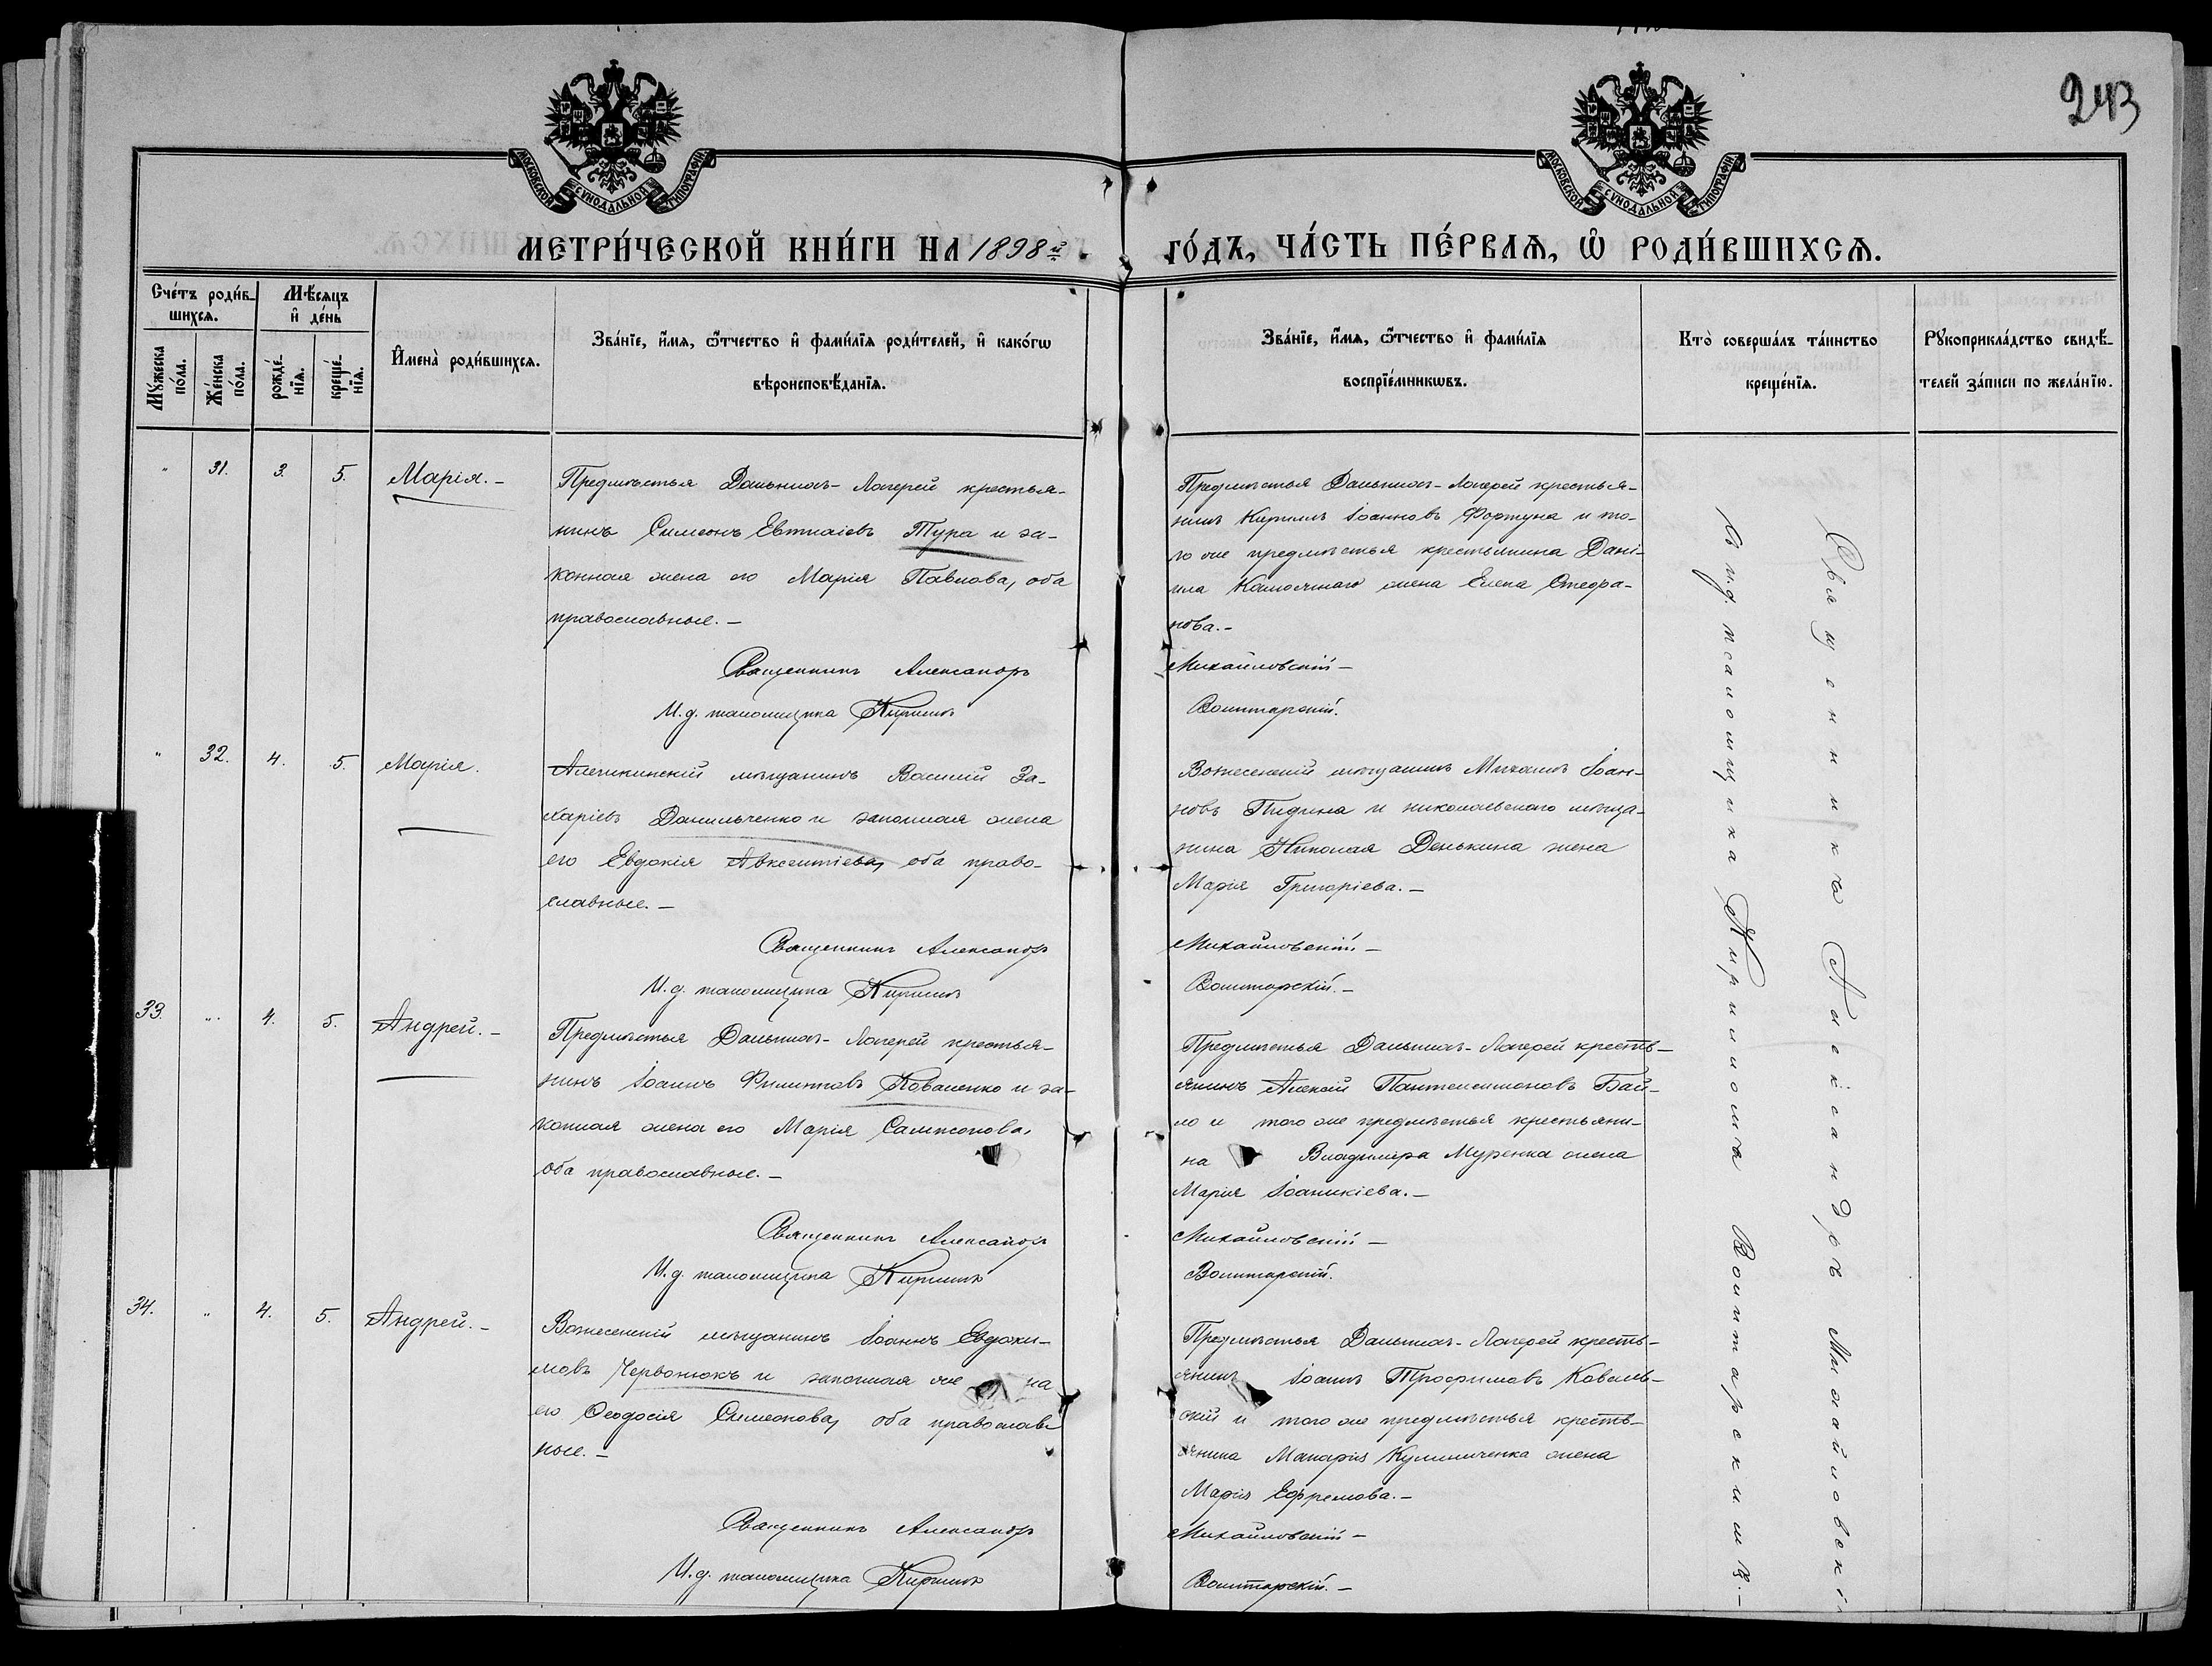 243
МОСКОВСКОЙ СѴНОДАЛЬНОЙ ТИПОГРАФІИ
МОСКОВСКОЙ СѴНОДАЛЬНОЙ ТИПОГРАФІИ
МЕТРИ́ЧЕСКОЙ КНИ́ГИ НА 1898й
ГО́ДЪ, ЧА́СТЬ ПЕ́РВАѦ, Ѡ РОДИ́ВШИХСѦ.
Сче́тъ роди́в-
шихсѧ.
Мꙋ́жеска по́ла.
Же́нска по́ла.
Мѣ́сяцъ
и̂ де́нь
рожде́-
нїѧ.
креще́-
нїѧ.
И̂мена̀ роди́вшихсѧ.
Зва́нїе, и̂́мѧ, ѻ҆́тчество и̂ фами́лїѧ роди́телей, и̂ како́гѡ
вѣроисповѣ́данїѧ.
Зва́нїе, и̂́мѧ, ѻ҆́тчество и̂ фами́лїѧ
воспрїе́мникѡвъ.
Кто̀ соверша́лъ та́инство
креще́нїѧ.
Рꙋкоприкла́дство свидѣ́-
телей за́писи по жела́нїю.
" 31. 3. 5. Марія.-
Предмѣстья Дальныхъ-Лагерей крестья-
нинъ Симеонъ Евтихіевъ Тура и за-
конная жена его Марія Павлова, оба
православные.-
Священникъ Александръ
И.д. псаломщика Кириллъ
Предмѣстья Дальныхъ-Лагерей крестья-
нинъ Кириллъ Іоанновъ Фортуна и то-
го же предмѣстья крестьянина Дані-
ила жена Елена Стефа-
нова.-
Михайловскій-
" 32. 4. 5. Марія.
мѣщанинъ Василій За-
харіевъ Данильченко и законная жена
его Евдокія Авксентіева, оба право-
славные.-
Священникъ Александръ
И.д. псаломщика Кириллъ
Вознесенскій мѣщанинъ Михаилъ Іоан-
новъ и николаевскаго мѣща-
нина Николая Денькина жена
Марія Григоріева.-
Михайловскій-
33. " 4. 5. Андрей.-
Предмѣстья Дальныхъ-Лагерей крестья-
нинъ Іоаннъ Филипповъ Коваленко и за-
конная жена его Марія Сампсонова,
оба православные.-
Священникъ Александръ
И.д. псаломщика Кириллъ
Предмѣстья Дальныхъ-Лагерей кресть-
янинъ Алексій Пантелеимоновъ Бай-
ло и того же предмѣстья крестьяни-
на Владиміра Муренка жена
Марія Іоаникіева.-
Михайловскій-
34. " 4. 5. Андрей.-
Вознесенскій мѣщанинъ Іоаннъ Евдоки-
мовъ Червонюкъ и законная жена
его Ѳеодосія Симеонова, оба православ-
ные.-
Священникъ Александръ
И.д. псаломщика Кириллъ
Предмѣстья Дальныхъ-Лагерей кресть-
янинъ Іоаннъ Трофимовъ Коваль-
скій и того же предмѣстья кресть-
янина Макарія Кулиниченка жена
Марія Ефремова.-
Михайловскій-
Священникъ Александръ Михайловскій
И.д. псаломщика Кирилломъ